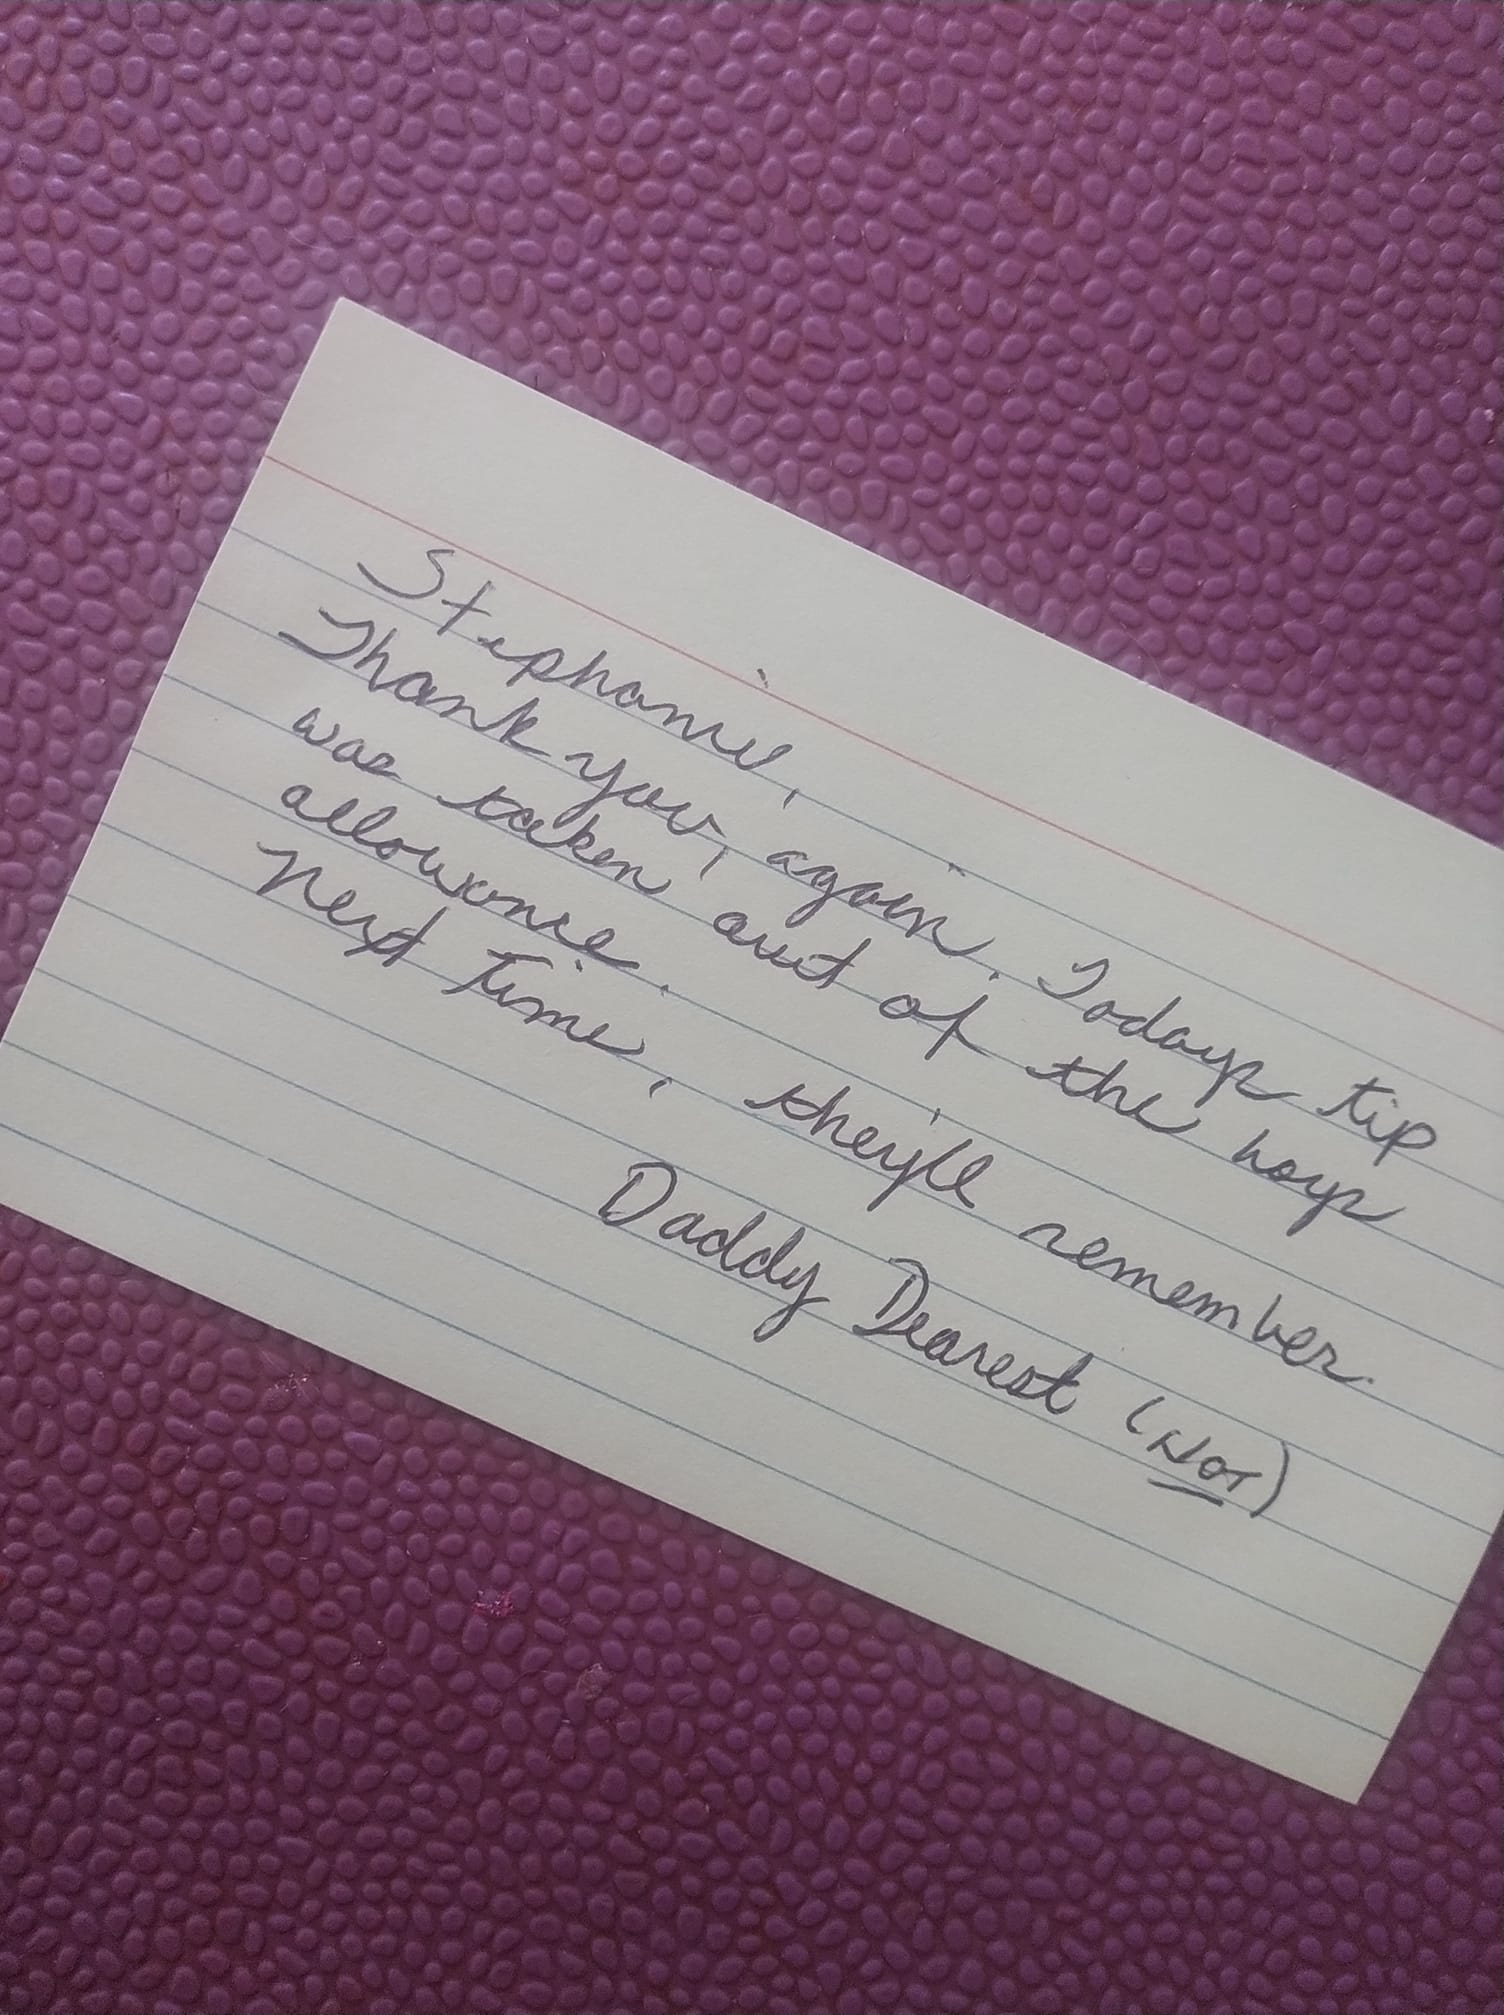 Stephanie,
Thank you, again. Todays tip
was taken out of the boys
allowance.
Next time, they'll remember.
Daddy Dearest (NOT)